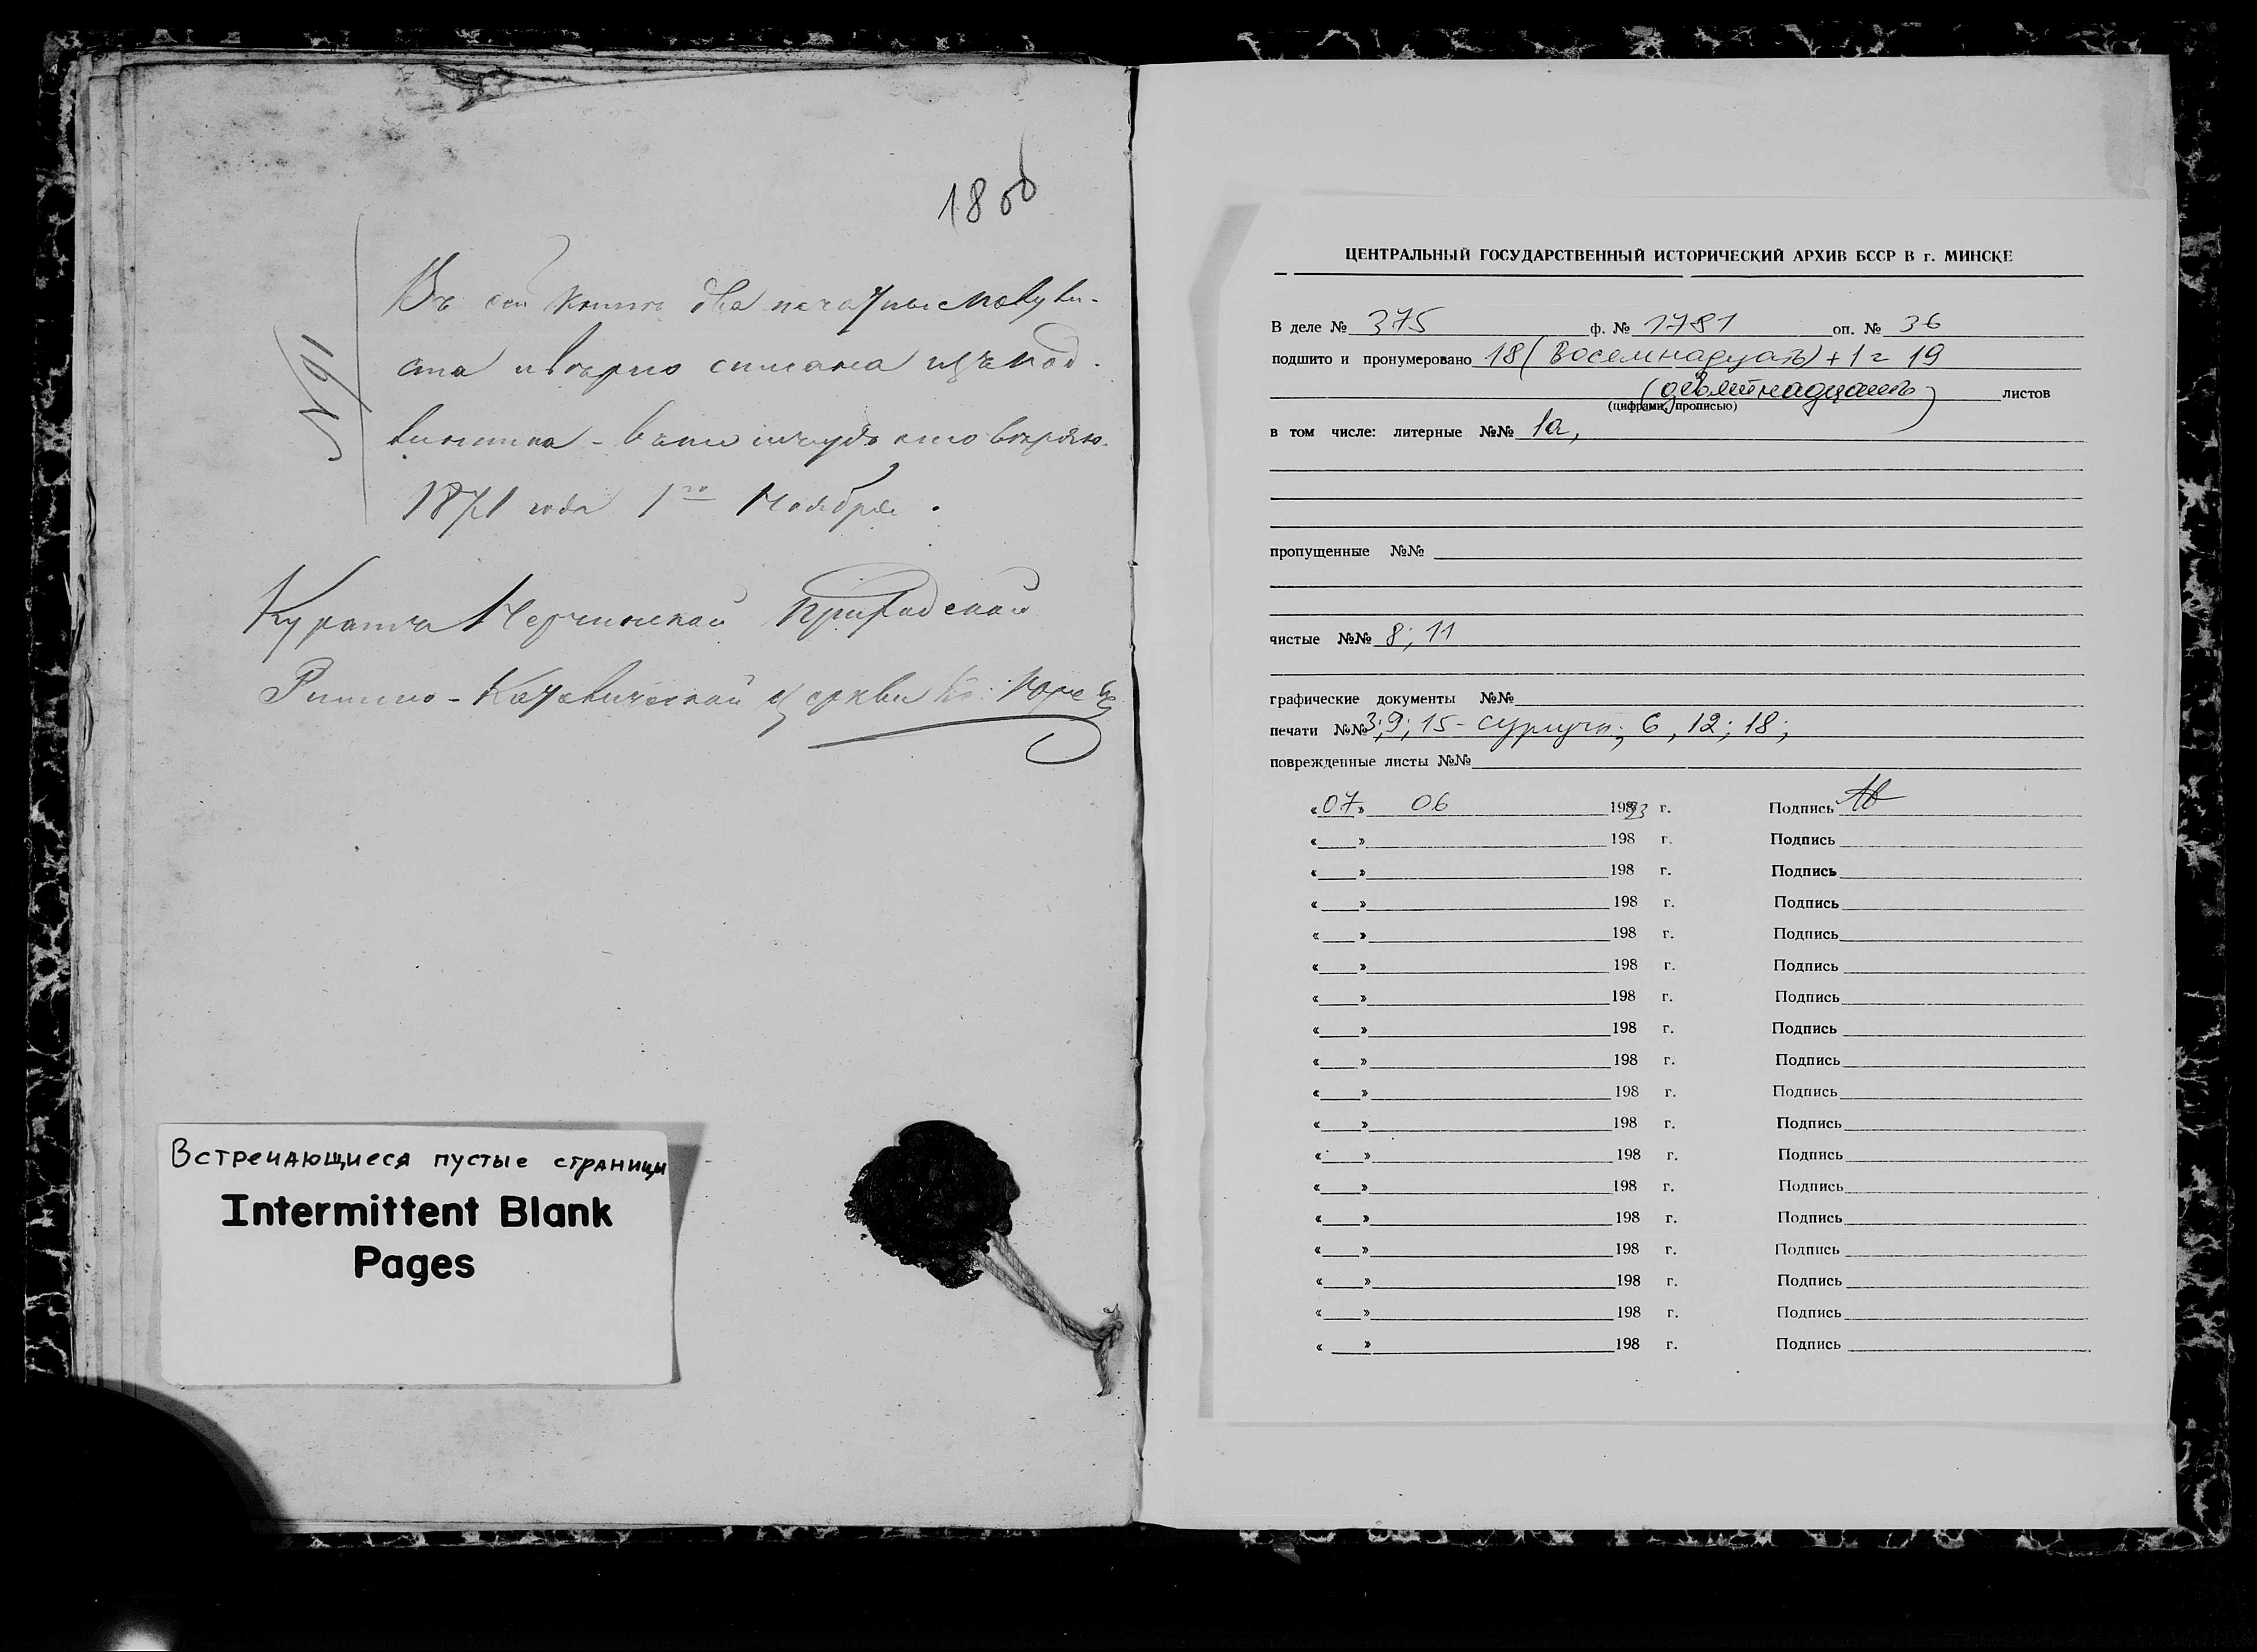 18 об
№ 91
Въ сей книгѣ два печатные
ста и вѣрно
1871 года 1го Ноября.
Римско-Католической церкви Кс:
Встречающиеся пустые страницы
Intermittent Blank
Pages
ЦЕНТРАЛЬНЫЙ ГОСУДАРСТВЕННЫЙ ИСТОРИЧЕСКИЙ АРХИВ БССР В г. МИНСКЕ
В деле № 375 ф. № 1781 оп. № 36
подшито и пронумеровано 18 (Восемнадцать) + 1 = 19
(девятнадцать) листов
(цифрами, прописью)
в том числе: литерные №№ 1а,
пропущенные №№
чистые №№ 8; 11
графические документы №№
печати №№ 3; 9; 15 - сургучн; 6, 12; 18;
поврежденные листы №№
«07» 06 1993 г. Подпись
« » 198 г. Подпись
« » 198 г. Подпись
« » 198 г. Подпись
« » 198 г. Подпись
« » 198 г. Подпись
« » 198 г. Подпись
« » 198 г. Подпись
« » 198 г. Подпись
« » 198 г. Подпись
« » 198 г. Подпись
« » 198 г. Подпись
« » 198 г. Подпись
« » 198 г. Подпись
« » 198 г. Подпись
« » 198 г. Подпись
« » 198 г. Подпись
« » 198 г. Подпись